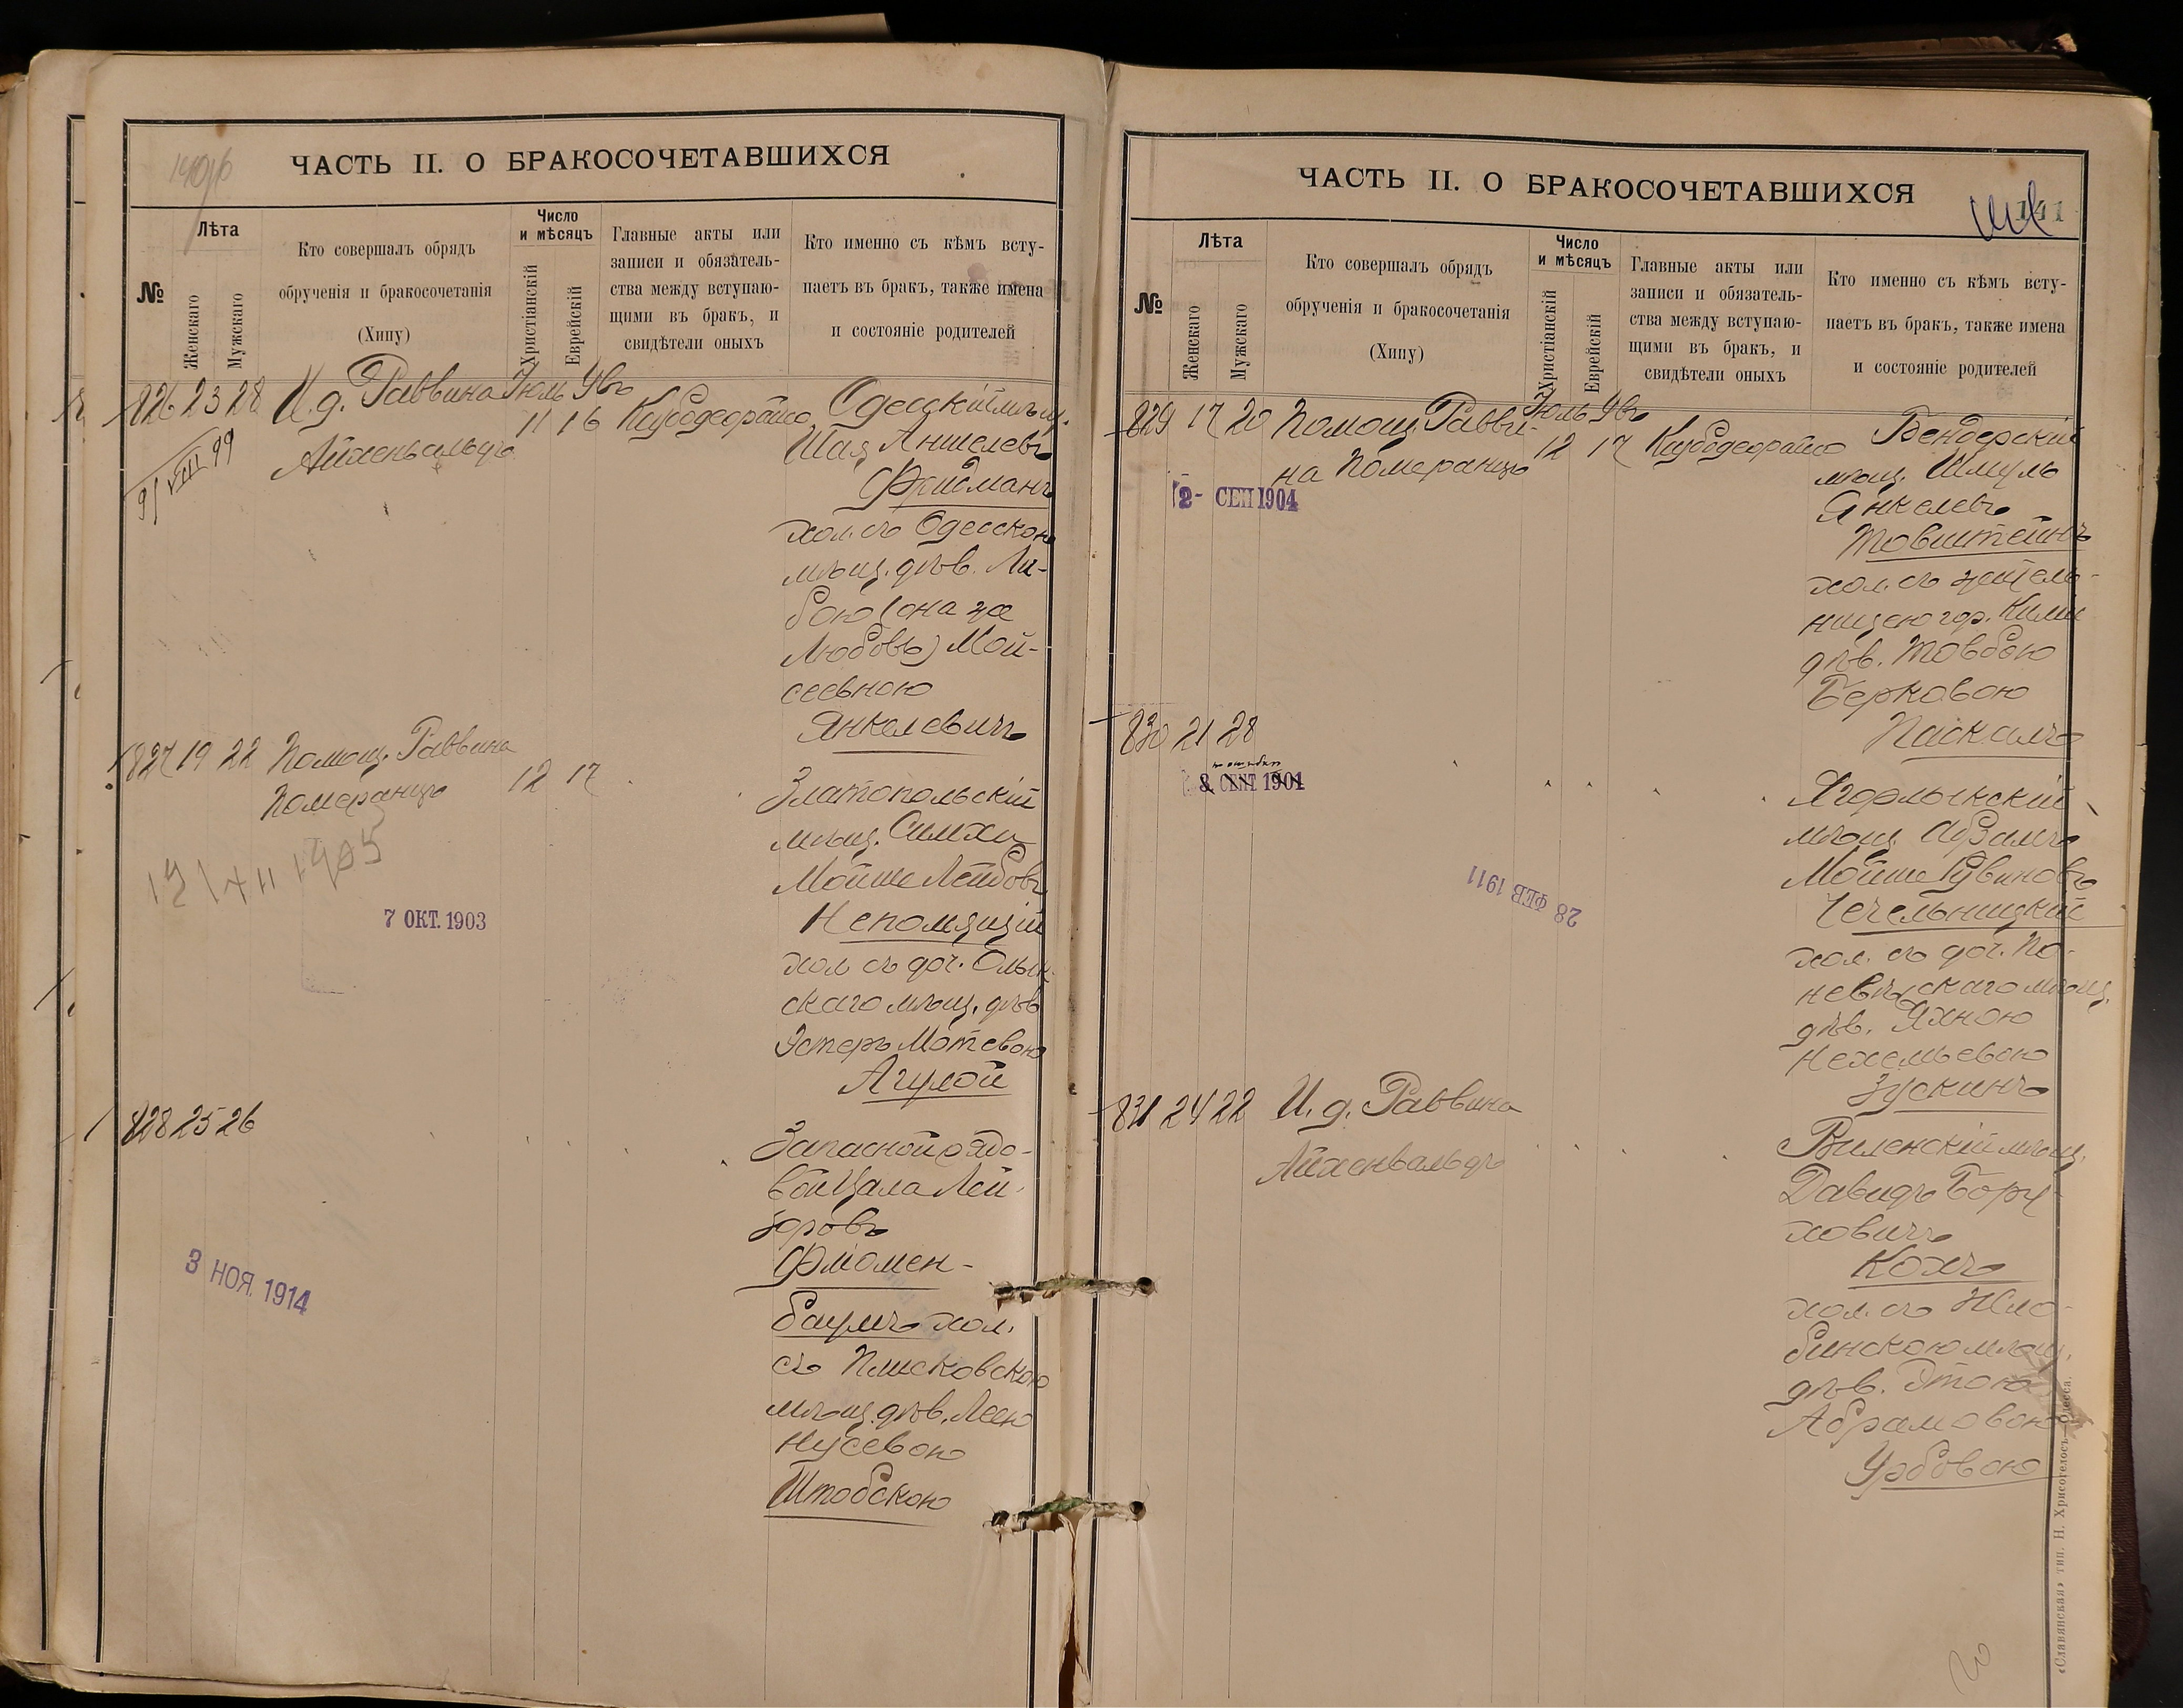 ЧАСТЬ II. О БРАКОСОЧЕТАВШИХСЯ
№
Лѣта
Женскаго
Мужскаго
Кто совершалъ обрядъ
обрученія и бракосочетанія
(Хипу)
Число
и мѣсяцъ
Христіанскій
Еврейскій
Главные акты или
записи и обязатель-
ства между вступаю-
щими въ бракъ, и
свидѣтели оныхъ
Кто именно съ кѣмъ всту-
паетъ въ бракъ, также имена
и состояніе родителей
826 23 28 И. д. Раввина Іюль
Айхенвальдъ
11 16
9/VIII 99
Одесскій мѣщ.
Шая Аншелевъ
Фридманъ
хол. съ Одесскою
мѣщ. дѣв. Ли-
бою (она же
Любовь) Мой-
сеевною
Янкелевичъ
827 19 22 Помощ. Раввина
Померанцъ
12 17
Златопольскій
мѣщ. Симха
Мойше Лейбовъ
Непомящій
хол. съ доч. Олык-
скаго мѣщ. дѣв.
Эстеръ Мотевою
Агулой
7 ОКТ. 1903
828 25 26
Запасной рядо-
вой Цала Лей-
зеровъ
Флюмен-
баумъ хол.
съ Плисковскою
мѣщ. дѣв. Леею
Нусевою
3 НОЯ. 1914
ЧАСТЬ II. О БРАКОСОЧЕТАВШИХСЯ
141
№
Лѣта
Женскаго
Мужскаго
Кто совершалъ обрядъ
обрученія и бракосочетанія
(Хипу)
Число
и мѣсяцъ
Христіанскій
Еврейскій
Главные акты или
записи и обязатель-
ства между вступаю-
щими въ бракъ, и
свидѣтели оныхъ
Кто именно съ кѣмъ всту-
паетъ въ бракъ, также имена
и состояніе родителей
829 17 20 Помощ. Равви-
на Померанцъ
Іюль
12 17
2- СЕП 1904
Бендерскій
мѣщ. Шмуль
Янкелевъ
Товштейнъ
хол. съ житель-
ницею гор. Киліи
дѣв. Товбою
Берковою
Паскалъ
830 21 28
8 СЕП 1904
28 ФЕВ 1911
Ягорлыкский
мѣщ. Абрамъ
Мойше Рувиновъ
Чечельницкій
хол. съ доч. По-
невѣжскаго мѣщ.
дѣв. Яхною
Нехемьевою
Зускинъ
831 24 22 И. д. Раввина
Айхенвальдъ
Виленскій мѣщ.
Давидъ Бору-
ховичъ
Кохъ
хол. съ Жло-
бинскою мѣщ.
дѣв. Этою
Абрамовою
«Славянская» тип. Н. Хрисогелосъ—Одесса.